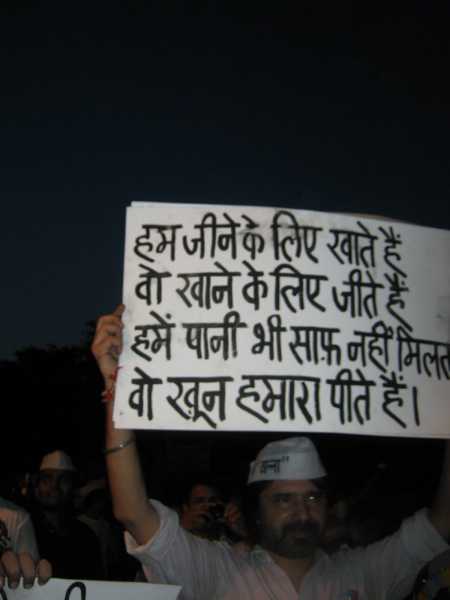 हम जीने के लिए खाते हैं,
वो खाने के लिए जीते हैं
हमें पानी भी साफ़ नहीं मिलत
वो खून हमारा पीते हैं।